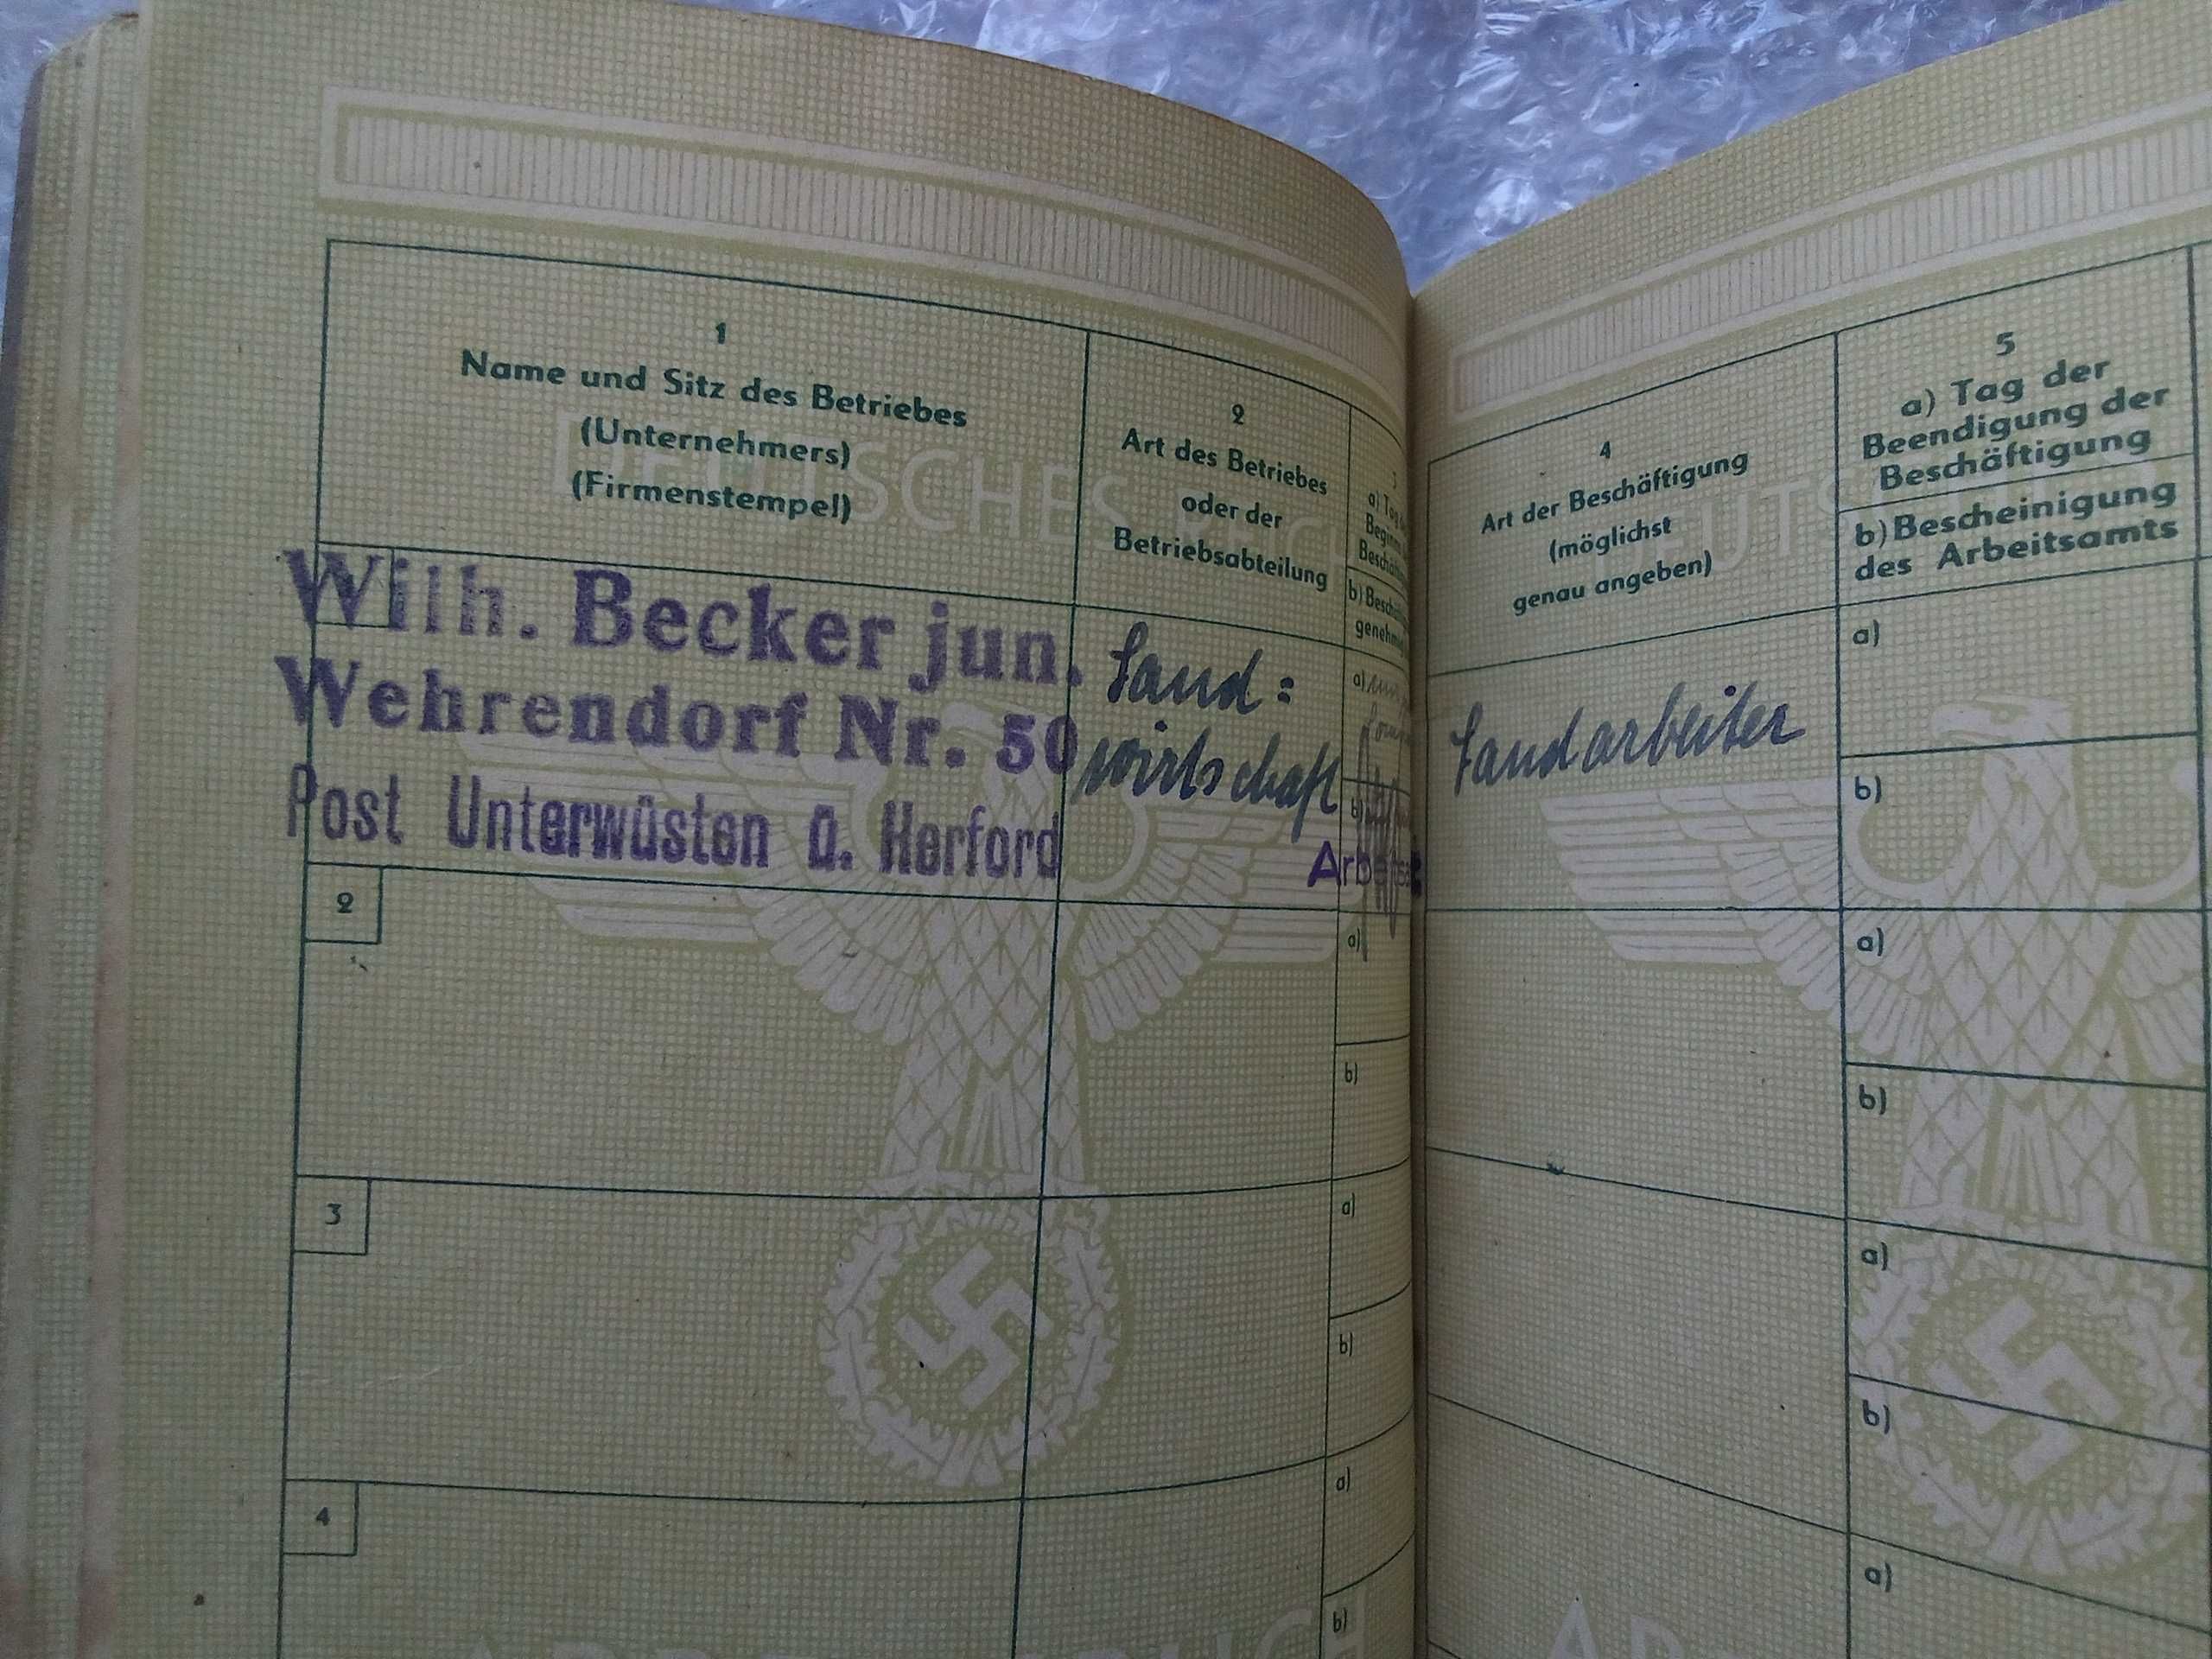 1
Name und Sitz des Betriebes
(Unternehmers)
(Firmenstempel)
2
Art des Betriebes
oder der
Betriebsabteilung
3
a) Tag
Beginn
b)
4
Art der Beschäftigung
(möglichst
genau angeben)
5
a) Tag der
Beendigung der
Beschäftigung
b) Bescheinigung
des Arbeitsamts
Wilh. Becker jun.
Wehrendorf Nr. 50
Post Unterwüsten ü. Herford
Land=
wirtschaft
a)
b)
Landarbeiter
a)
b)
2
a)
b)
a)
b)
3
a)
b)
a)
b)
4
a)
b)
a)
DEUTSCHES REICH
ARBEITSBUCH